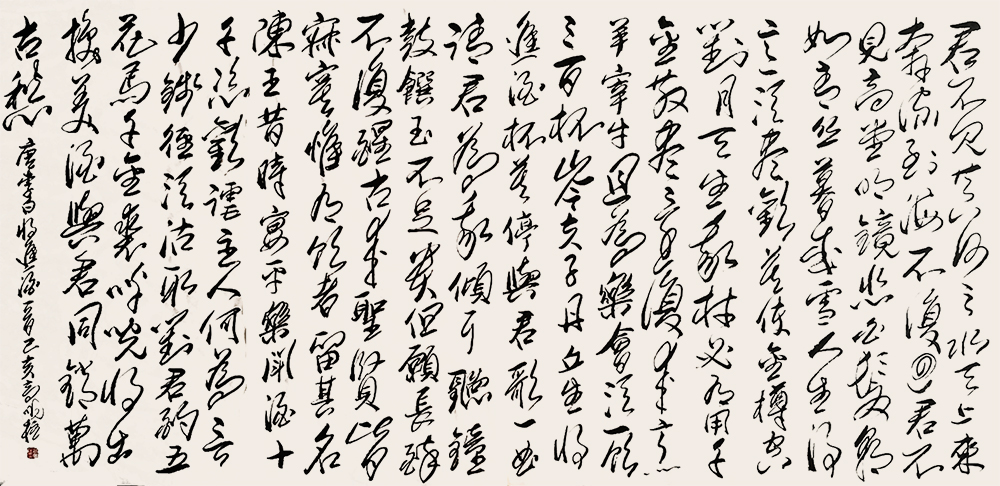 君不見黄河之水天上来
奔流到海不復回君不
見高堂明鏡悲白髮朝
如青丝暮成雪人生得
意须盡歡莫使金樽空
對月天生我材必有用千
金散盡還復来烹
羊宰牛且為樂會须一飲
三百杯岑夫子丹丘生將
進酒杯莫停與君歌一曲
請君為我傾耳聽鐘
鼓饌玉不足貴但願長醉
不復醒古来聖賢皆
寂寞惟有飲者留其名
陳王昔時宴平樂鬥酒十
千恣歡謔主人何為言
少錢徑须沽取對君酌五
花馬千金裘呼兒將出
換美酒與君同銷萬
古愁
唐李白將進酒一首己亥